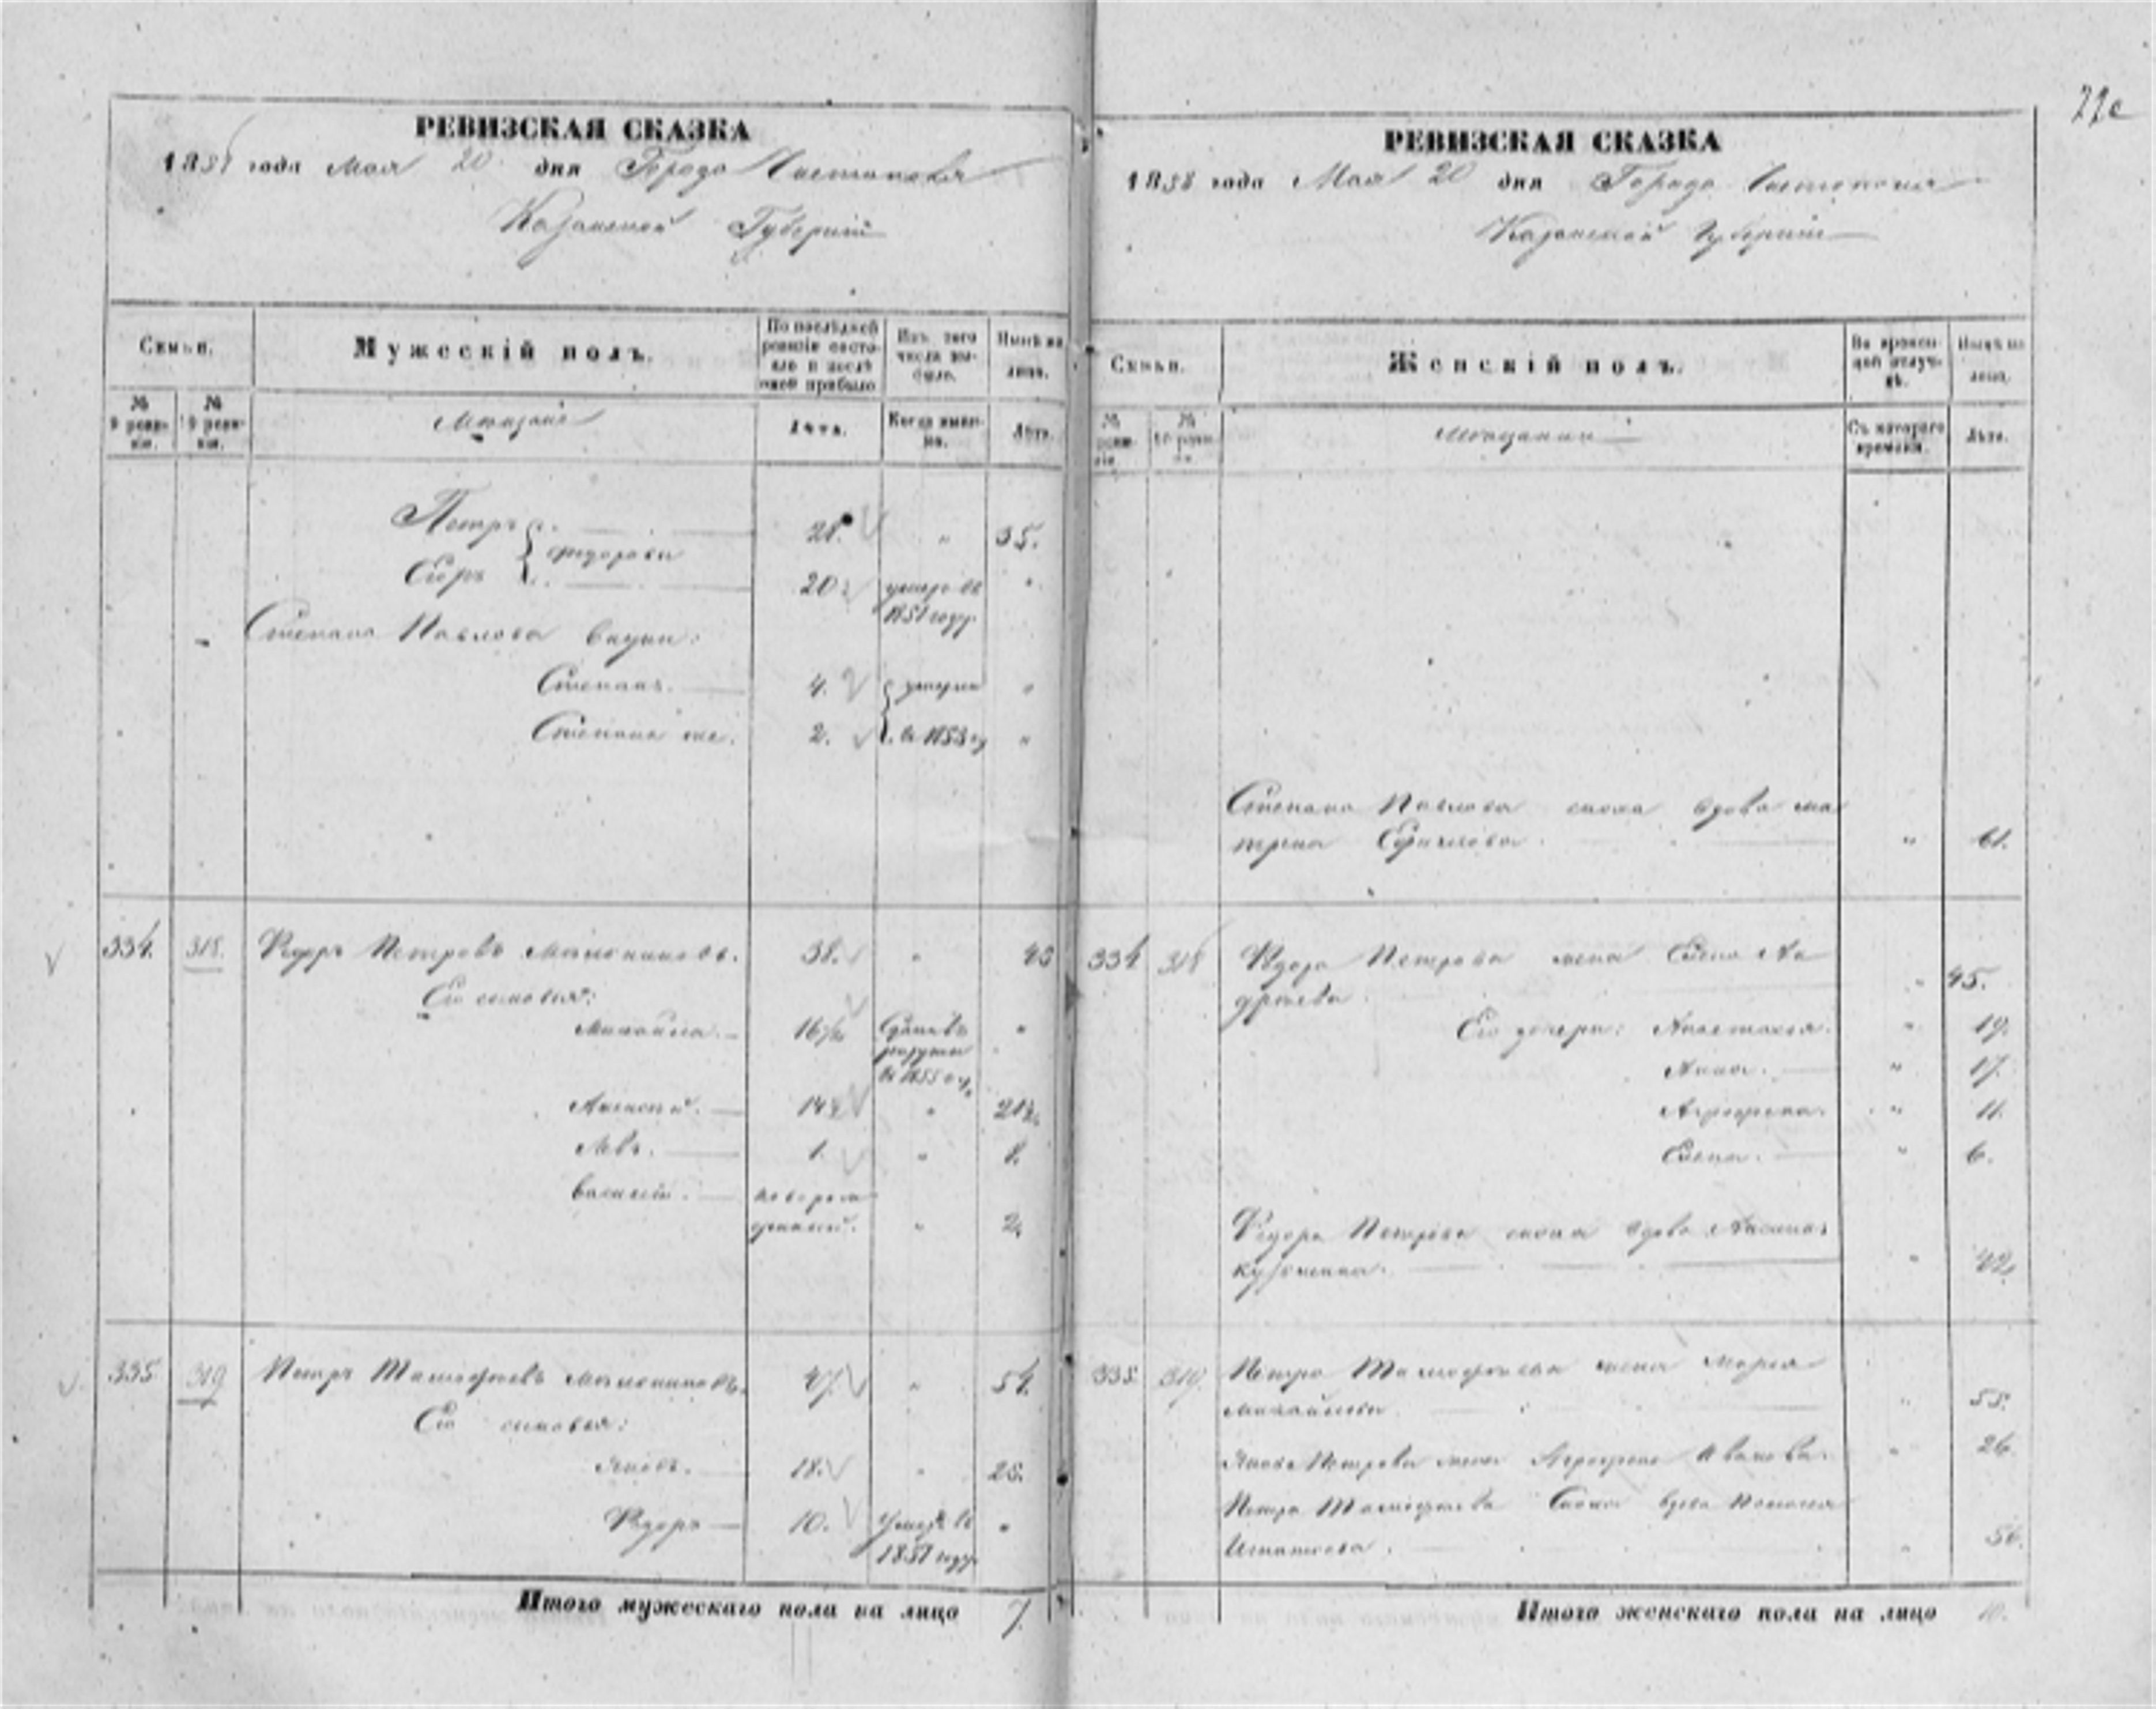 22
РЕВИЗСКАЯ СКАЗКА
1858 года Мая 20 дня Города Чистополя
Казанской Губернии
Семьи.
Мужескiй полъ.
По послѣдней ревизiи состояло и послѣ оной прибыло
Изъ того числа выбыло.
Нынѣ на лицо.
№ 9 ревизiи.
№ 10 ревизiи.
Мѣщане
Лѣта.
Когда именно.
Лѣта.
Петръ 28. " 35.
Федоровы
Егоръ 20. умеръ въ 1851 году "
Степана Павлова внуки:
Степанъ. 4. умерли "
Степанъ же. 2. въ 1853 г "
334. 318. Федоръ Петровъ 38. "
Его сыновья:
Михайла. 16 "
рекруты
въ 1855 г.
Алексей. 14 " 21
Левъ. 1. " 8.
Василiй. новорож
денный. " 2.
335 319 Петръ Тимофѣевъ 47. " 54.
Его сыновья:
Яковъ. 18. " 25.
Федоръ 10. Умеръ въ "
1851 году
Итого мужескаго пола на лицо 7.
РЕВИЗСКАЯ СКАЗКА
1858 года Мая 20 дня Города Чистополя
Казанской Губернии
Семьи.
Женскiй полъ.
Во временной отлучкѣ.
Нынѣ на лицо.
№ ревизiи
№ 10 ревизiи
Мѣщанки
Съ котораго времени.
Лѣта.
Степана Павлова сноха вдова Ма
трена " 61.
334 318 Федора Петрова жена Елена Ан
дреева " 45.
Его дочери: Анастасья. " 19.
Анна. " 17.
Агрофена. " 11.
Елена. " 6.
Федора Петрова сноха вдова
Кузмина. "
335 319 Петра Тимофѣева жена Марья
Михайлова " 55.
Якова Петрова жена Агрофена Иванова. " 26.
Петра Тимофѣева Сноха вдова
Игнатьева. " 56.
Итого женскаго пола на лицо 10.